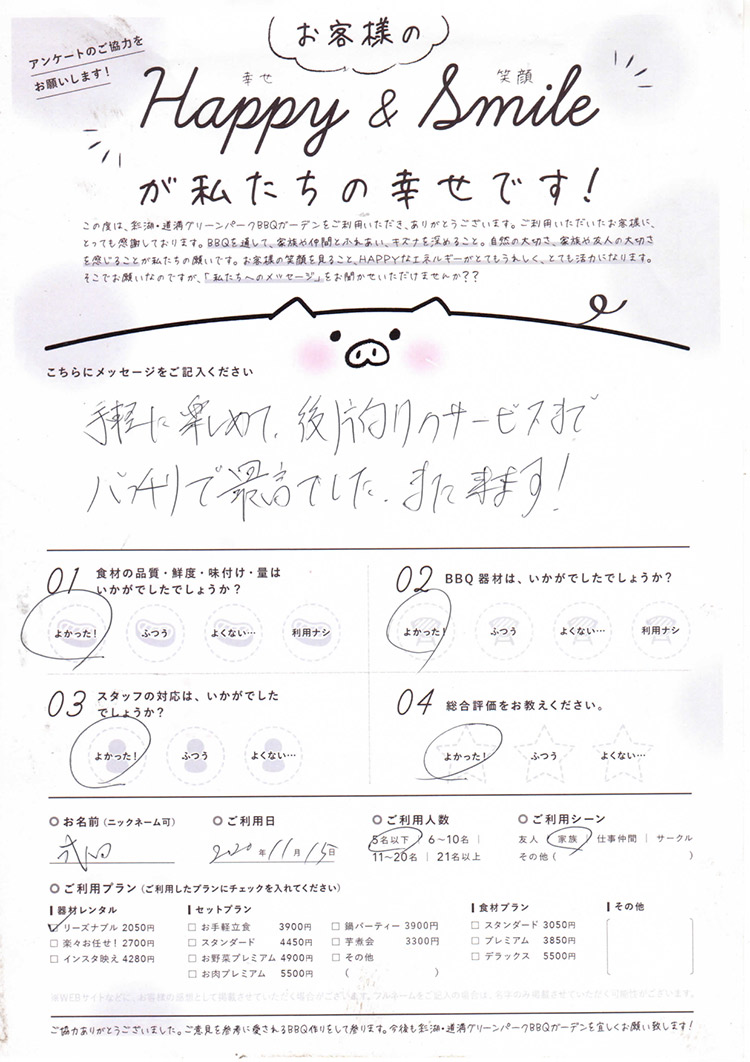 アンケートのご協力を
お願いします！
お客様の
幸せ 笑顔
Happy & Smile
が私たちの幸せです！
この度は、彩湖・道満グリーンパークBBQガーデンをご利用いただき、ありがとうございます。ご利用いただいたお客様に、
とっても感謝しております。BBQを通して、家族や仲間とふれあい、キズナを深めること。自然の大切さ、家族や友人の大切さ
を感じることが私たちの願いです。お客様の笑顔を見ること、HAPPYなエネルギーがとてもうれしく、とても活力になります。
そこでお願いなのですが、「私たちへのメッセージ」をお聞かせいただけませんか？？
こちらにメッセージをご記入ください
手軽に楽しめて、後片付けのサービスまで
バッチリで最高でした。また来ます！
01 食材の品質・鮮度・味付け・量は
いかがでしたでしょうか？
よかった！ ふつう よくない… 利用ナシ
02 BBQ器材は、いかがでしたでしょうか？
よかった！ ふつう よくない… 利用ナシ
03 スタッフの対応は、いかがでした
でしょうか？
よかった！ ふつう よくない…
04 総合評価をお教えください。
よかった！ ふつう よくない…
お名前（ニックネーム可）
武田
ご利用日
2020年11月15日
ご利用人数
5名以下｜6〜10名｜
11〜20名｜21名以上
ご利用シーン
友人｜家族｜仕事仲間｜サークル
その他（ ）
ご利用プラン（ご利用したプランにチェックを入れてください）
器材レンタル
リーズナブル 2050円
楽々お任せ！2700円
インスタ映え 4280円
セットプラン
お手軽立食 3900円
スタンダード 4450円
お野菜プレミアム 4900円
お肉プレミアム 5500円
鍋パーティー 3900円
芋煮会 3300円
その他
（ ）
食材プラン
スタンダード 3050円
プレミアム 3850円
デラックス 5500円
その他
※WEBサイトなどに、お客様の感想として掲載させていただく場合がございます。フルネームをご記入の場合は、名字のみ掲載させていただく可能性がございます。
ご協力ありがとうございました。ご意見を参考に愛されるBBQ作りをして参ります。今後も彩湖・道満グリーンパークBBQガーデンを宜しくお願い致します！